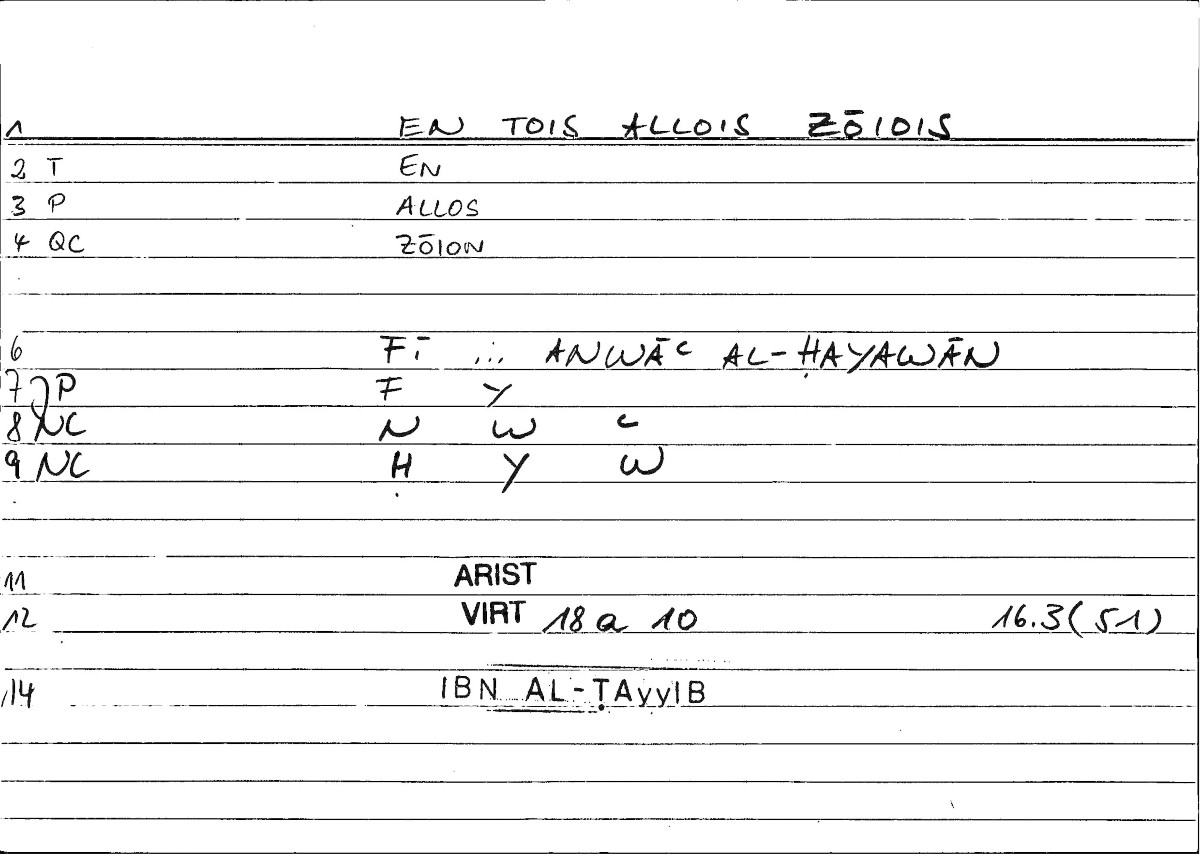 1 EN TOIS ALLOIS ZŌIOIS
2 T EN
3 P ALLOS
4 QC ZŌION
6 FĪ ... ANWĀʿ AL-ḤAYAWĀN
7 P F Y
8 NC N W ʿ
9 NC Ḥ Y W
11 ARIST
12 VIRT 18a 10 16.3(51)
14 IBN AL-ṬAyyIB